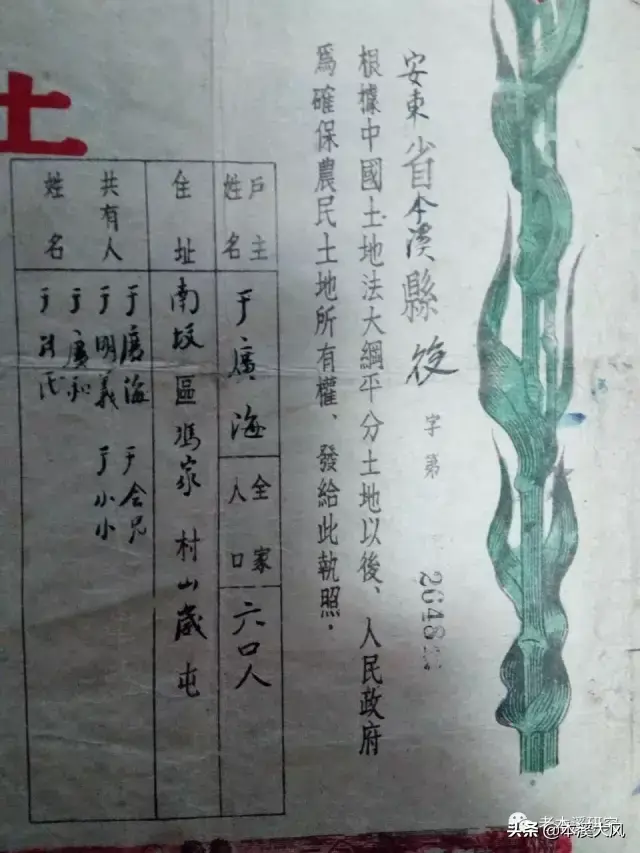 安東省本溪縣後字第2648
根據中國土地法大綱平分土地以後、人民政府
為確保農民土地所有權、發給此執照.
戶主姓名 于廣海 全家人口 六口人
住址 南坟區馮家村山歲屯
共有人姓名 于廣海 于舍兄
于明義 于小小
于廣和
于氏
土
老本溪研究
头条@本溪天风